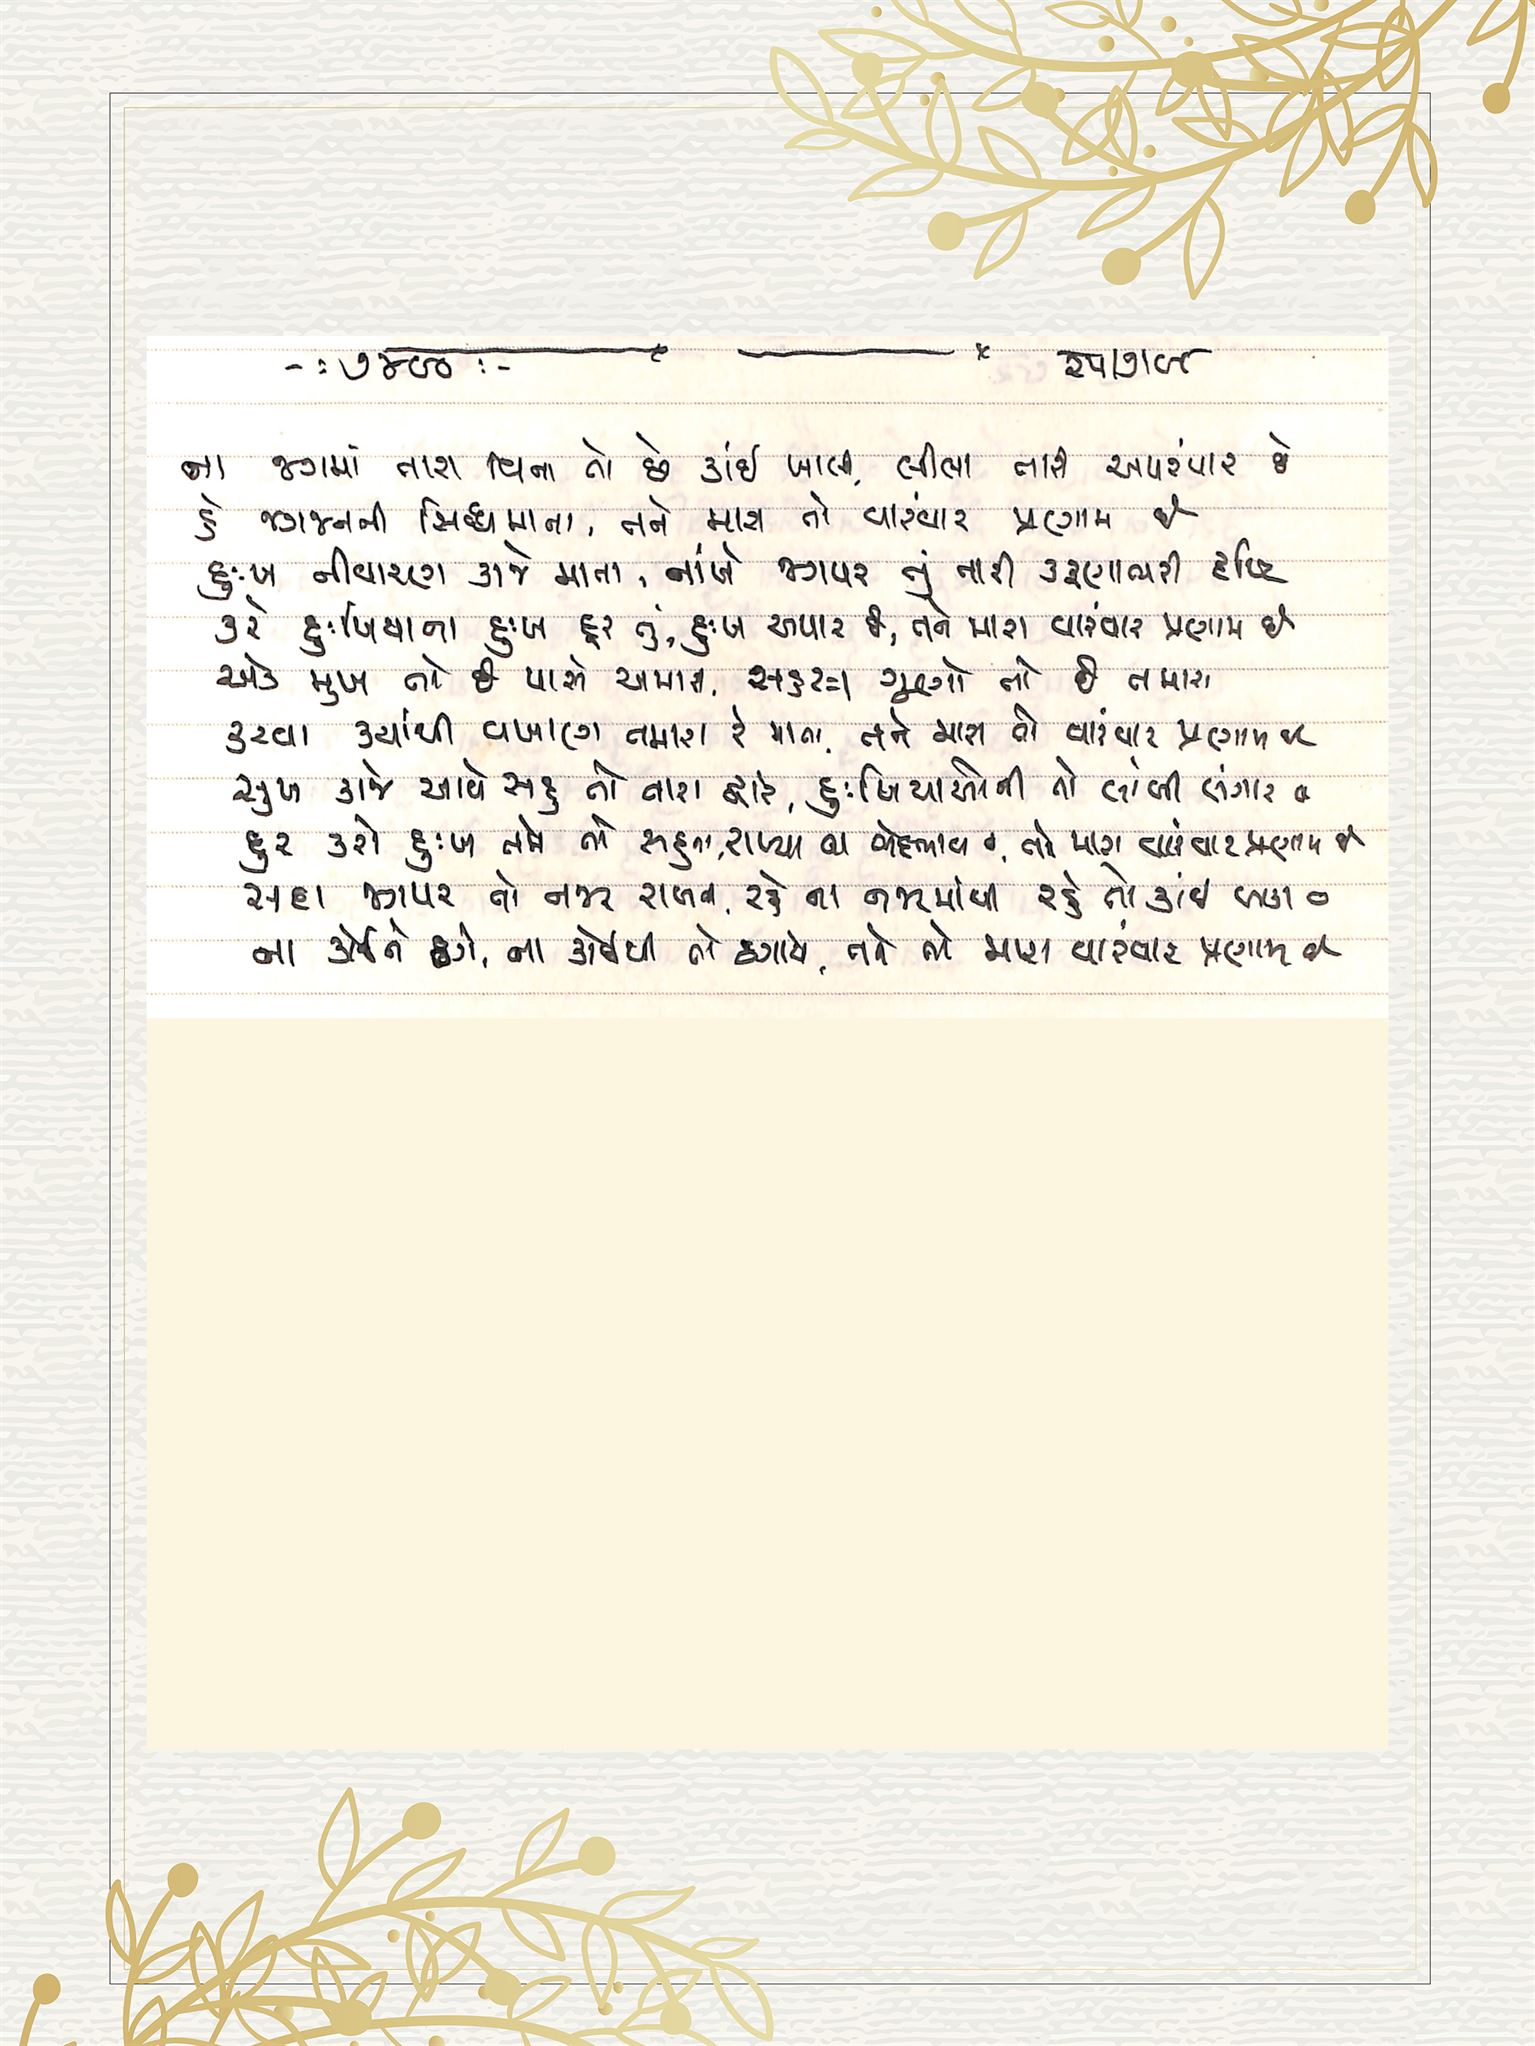 -: ૭૪૯૦ :- ૨૫/૭/૯૮
ના જગમાં તારા વિના તો છે કાંઈ ખાલી, લીલા તારી અપરંપાર છે
હે જગજનની સિધ્ધમાતા, તને મારા તો વારંવાર પ્રણામ છે
દુઃખ નીવારણ કાજે માતા, નાંખે જગપર તું તારી કરૂણાભરી દૃષ્ટિ
કરે દુઃખિયાના દુઃખ દૂર તું, દુઃખ અપાર છે, તને મારા વારંવાર પ્રણામ છે
એક મુખ તો છે પાસે અમારી, ગૂણો તો છે તમારા
કરવા ક્યાંથી વખાણ તમારા રે માતા, તને મારા તો વારંવાર પ્રણામ છે
સુખ કાજે આવે સહુ તો તારા દ્વારે, દુઃખિયાઓની તો લાંબી લંગાર
દુર કરો દુઃખ તમે તો સહુના, રાખ્યા ના ભેદભાવ, તો મારા વારંવાર પ્રણામ છે
સદા જગપર તો નજર રાખતી, રહે ના નજરમાંથી રહે તો કાંઈ
ના કોઈને ઠગે, ના કોઈથી તો ઠગાયે, તને તો મારા વારંવાર પ્રણામ છે